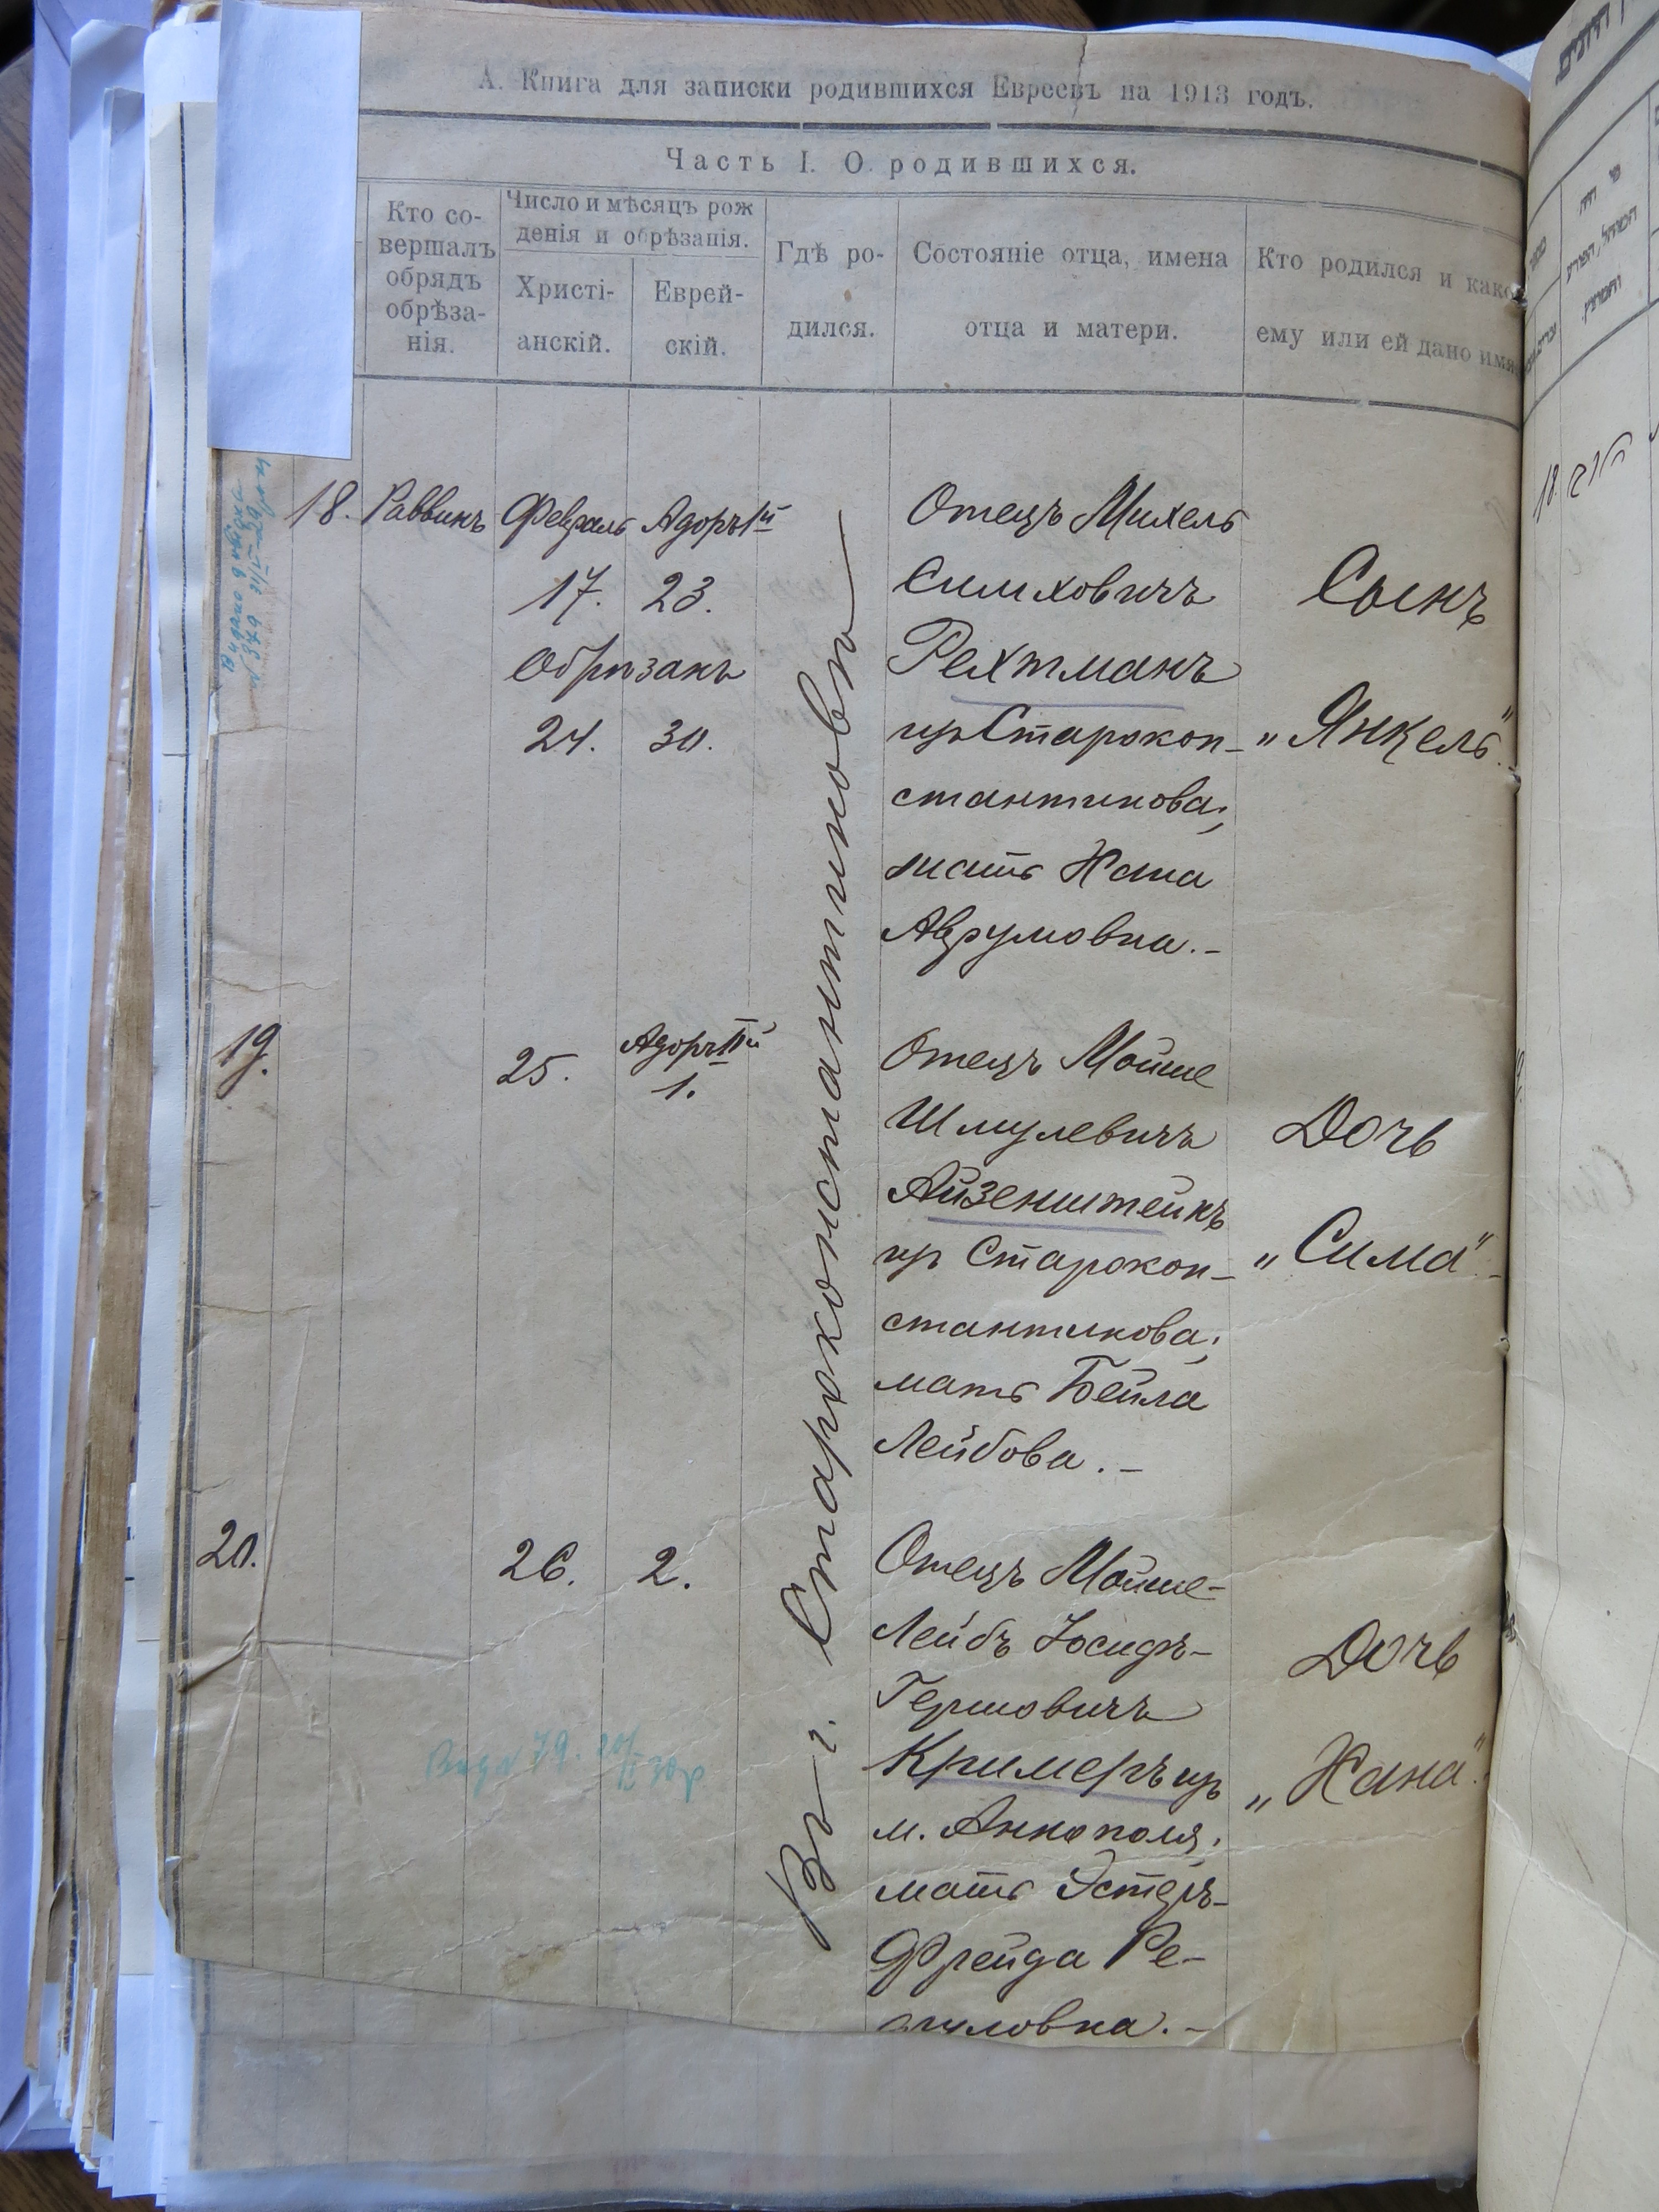 А. Книга для записки родившихся Евреевъ на 1913 годъ.
Часть I. О родившихся.
Кто со-
вершалъ
обрядъ
обрѣза-
нія.
Число и мѣсяцъ рож
денія и обрѣзанія.
Христі-
анскій.
Еврей-
скій.
Гдѣ ро-
дился.
Состояніе отца, имена
отца и матери.
Кто родился и како
ему или ей дано имя
18. Раввинъ Февраль Адоръ Iй
17. 23.
Обрѣзанъ
24. 30.
Въ г. Староконстантиновѣ
Отецъ Михель
Симховичъ
Рехтманъ
изъ Старокон-
стантинова;
мать Хана
Аврумовна.-
Сынъ
„Янкель".
19. 25. Адоръ IIй
1.
Отецъ Мойше
Шмулевичъ
Айзенштейнъ
изъ Старокон-
стантинова;
мать Бейла
Лейбова.-
Дочь
„Сима".-
20. 26. 2.
Отецъ Мойше-
Лейбъ Іосифъ-
Гершовичъ
Кримеръ изъ
м. Аннополя;
мать Эстеръ-
Фрейда Ре-
Дочь
„Хана".
18.